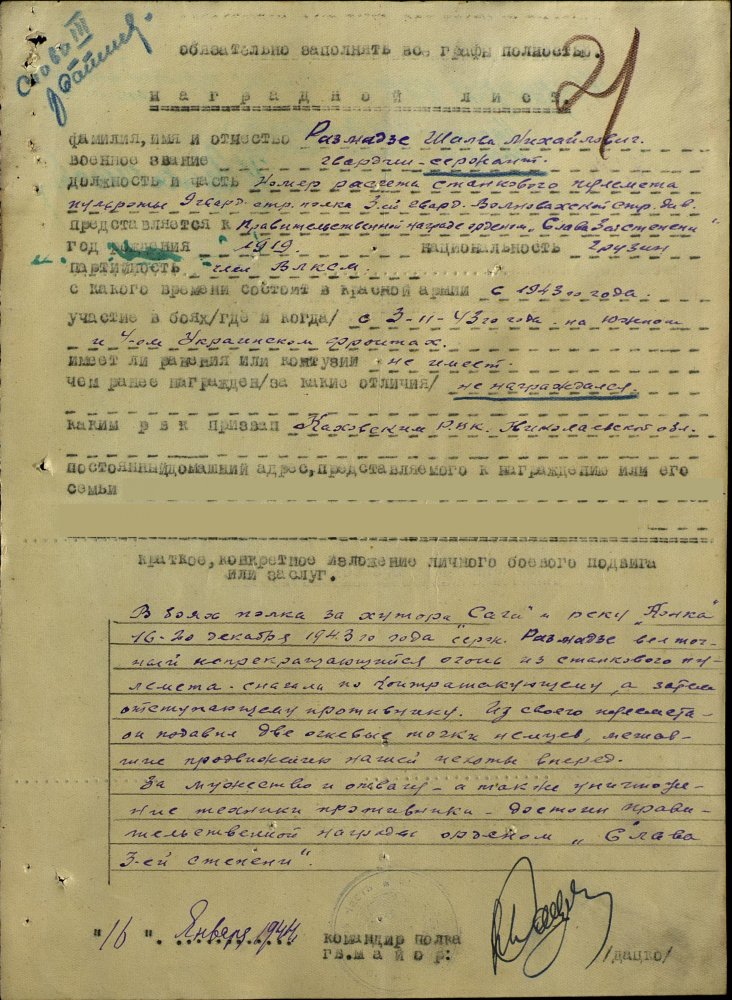 Слава III
обязательно заполнять все графы полностью.
21
наградной лист.
фамилия, имя и отчество Размадзе Шалва Михайлович.
военное звание гвардии-сержант.
должность и часть Номер расчета станкового пулемета
пульроты 9 гвард. стр. полка 3-ей гвард. Волновахской стр. див.
представляется к Правительственной награде ордену „Слава 3й степени"
год рождения 1919. национальность Грузин
партийность член ВЛКСМ.
с какого времени состоит в красной армии с 1943го года.
участие в боях/где и когда/ с 3-11-43го года. на Южном
и 4-ом Украинском фронтах.
имеет ли ранения или контузии не имеет.
чем ранее награжден/за какие отличия/ не награждался.
каким рвк призван Каховским Рвк. Николаевской обл.
постоянныйдомашний адрес,представляемого к награждению или его
семьи
краткое,конкретное изложение личного боевого подвига
или заслуг.
В боях полка за хутора „Саги" и реку
16-20 декабря 1943го года серж. Размадзе вел точ-
ный непрекращающийся огонь из станкового пу-
лемета - сначала по контратакующему, а затем
отступающему противнику. Из своего пулемета-
он подавил две огневые точки немцев, мешав-
шие продвижению нашей пехоты вперед.
За мужество и отвагу - а также уничтоже-
ние техники противника - достоин прави-
тельственной награды орденом „Слава
3-ей степени".
"16". Января 1944
командир полка
гв.майор: /дацко/